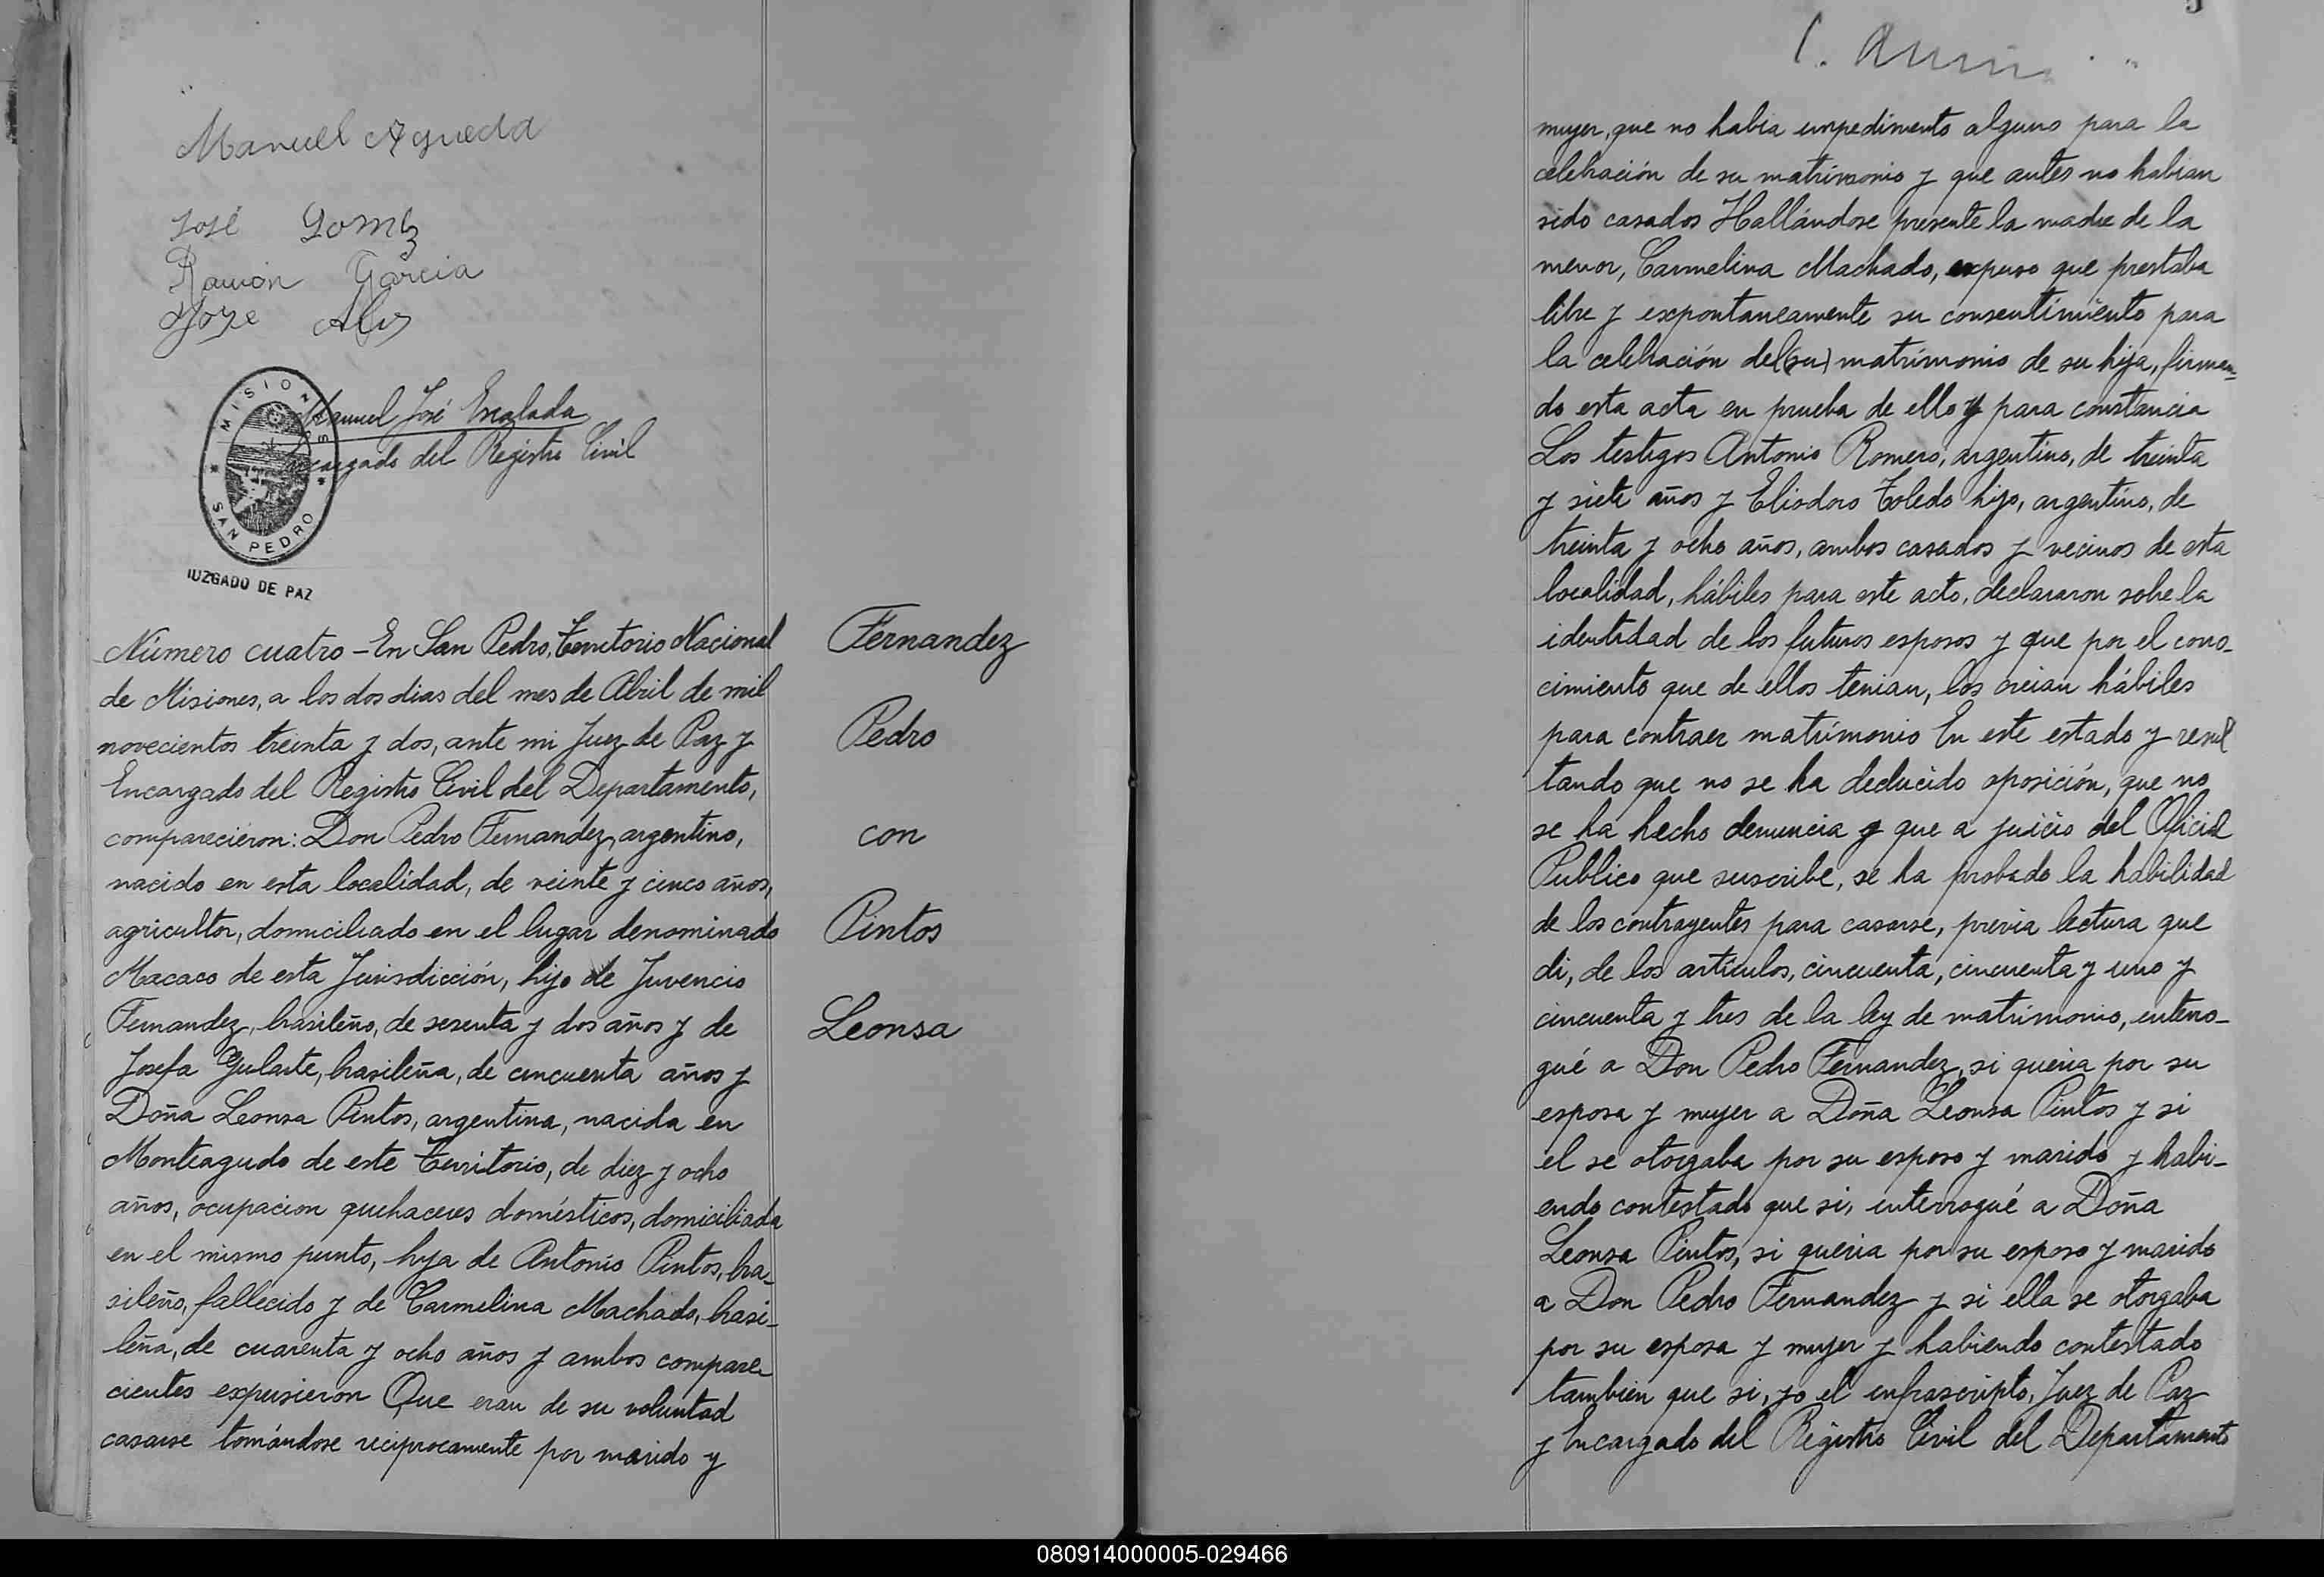 Manuel Agueda
José Gomz
Ramón Garcia
Jose
MISIONES
SAN PEDRO
JUZGADO DE PAZ
Manuel José Encalada
Encargado del Registro Civil
Número cuatro - En San Pedro, Territorio Nacional
de Misiones, a los dos dias del mes de Abril de mil
novecientos treinta y dos, ante mi Juez de Paz y
Encargado del Registro Civil del Departamento,
comparecieron: Don Pedro Fernandez, argentino,
nacido en esta localidad, de veinte y cinco años,
agricultor, domiciliado en el lugar denominado
Macaco de esta Jurisdicción, hijo de Juvencio
Fernandez, brasileño, de sesenta y dos años y de
Josefa Gularte, brasileña, de cincuenta años y
Doña Leonsa Pintos, argentina, nacida en
Monteagudo de este Territorio, de diez y ocho
años, ocupacion quehaceres domésticos, domiciliada
en el mismo punto, hija de Antonio Pintos, bra-
sileño, fallecido y de Carmelina Machado, brasi-
leña, de cuarenta y ocho años y ambos compare-
cientes expusieron Que eran de su voluntad
casarse tomándose reciprocamente por marido y
Fernandez
Pedro
con
Pintos
Leonsa
mujer, que no habia impedimento alguno para la
celebración de su matrimonio y que antes no habian
sido casados Hallándose presente la madre de la
menor, Carmelina Machado, expuso que prestaba
libre y expontaneamente su consentimiento para
la celebración del (su) matrimonio de su hija, firman-
do esta acta en prueba de ello y para constancia
Los testigos Antonio Romero, argentino, de treinta
y siete años y Eliodoro Toledo hijo, argentino, de
treinta y ocho años, ambos casados y vecinos de esta
localidad, hábiles para este acto, declararon sobre la
identidad de los futuros esposos y que por el cono-
cimiento que de ellos tenian, los creian hábiles
para contraer matrimonio En este estado y resul
tando que no se ha deducido oposición, que no
se ha hecho denuncia y que a juicio del Oficial
Publico que suscribe, se ha probado la habilidad
de los contrayentes para casarse, previa lectura que
di, de los artículos, cincuenta, cincuenta y uno y
cincuenta y tres de la ley de matrimonio, interro-
gué a Don Pedro Fernandez, si queria por su
esposa y mujer a Doña Leonsa Pintos y si
el se otorgaba por su esposo y marido y habi-
endo contestado que si, interrogué a Doña
Leonsa Pintos, si queria por su esposo y marido
a Don Pedro Fernandez y si ella se otorgaba
por su esposa y mujer y habiendo contestado
tambien que si, yo el infrascripto, Juez de Paz
y Encargado del Registro Civil del Departamento
080914000005-029466